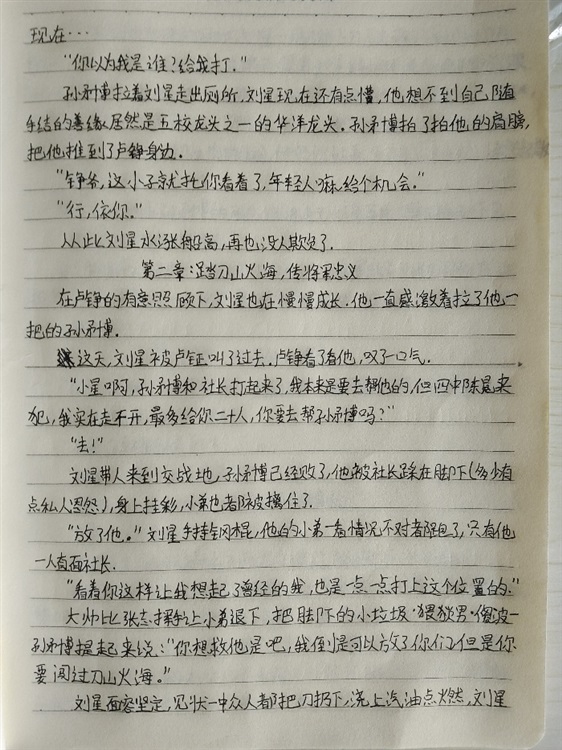 现在…
"你以为我是谁?给我打."
孙矛博拉着刘星走出厕所,刘星现在还有点懵,他想不到自己随
手结的善缘居然是五校龙头之一的华洋龙头.孙矛博拍了拍他的肩膀,
把他推到了卢铮身边.
"铮爷,这小子就托你看着了,年轻人嘛给个机会."
"行,依你."
从此刘星水涨船高,再也没人欺负了.
第二章:踏刀山火海,传将军忠义
在卢铮的有意照顾下,刘星也在慢慢成长.他一直感激着拉了他一
把的孙矛博.
这天,刘星被卢钲叫了过去.卢铮看了看他,叹了一口气.
"小星啊,孙矛博和社长打起来了,我本来是要去帮他的,但四中陈晁来
犯,我实在走不开,最多给你二十人,你要去帮孙矛博吗?"
"去!"
刘星带人来到交战地,孙矛博已经败了,他被社长踩在脚下(多少有
点私人恩怨),身上挂彩,小弟也都被擒住了.
"放了他."刘星手持钢棍,他的小弟一看情况不对都跑了,只有他
一人直面社长.
"看着你这样让我想起了曾经的我,也是一点一点打上这个位置的."
大帅比张志挥手让小弟退下,把脚下的小垃圾·猥琐男·傻波一
孙矛博提起来说:"你想救他是吧,我倒是可以放了你们,但是你
要闯过刀山火海."
刘星面容坚定,见状一中众人都把刀扔下,浇上汽油点燃,刘星